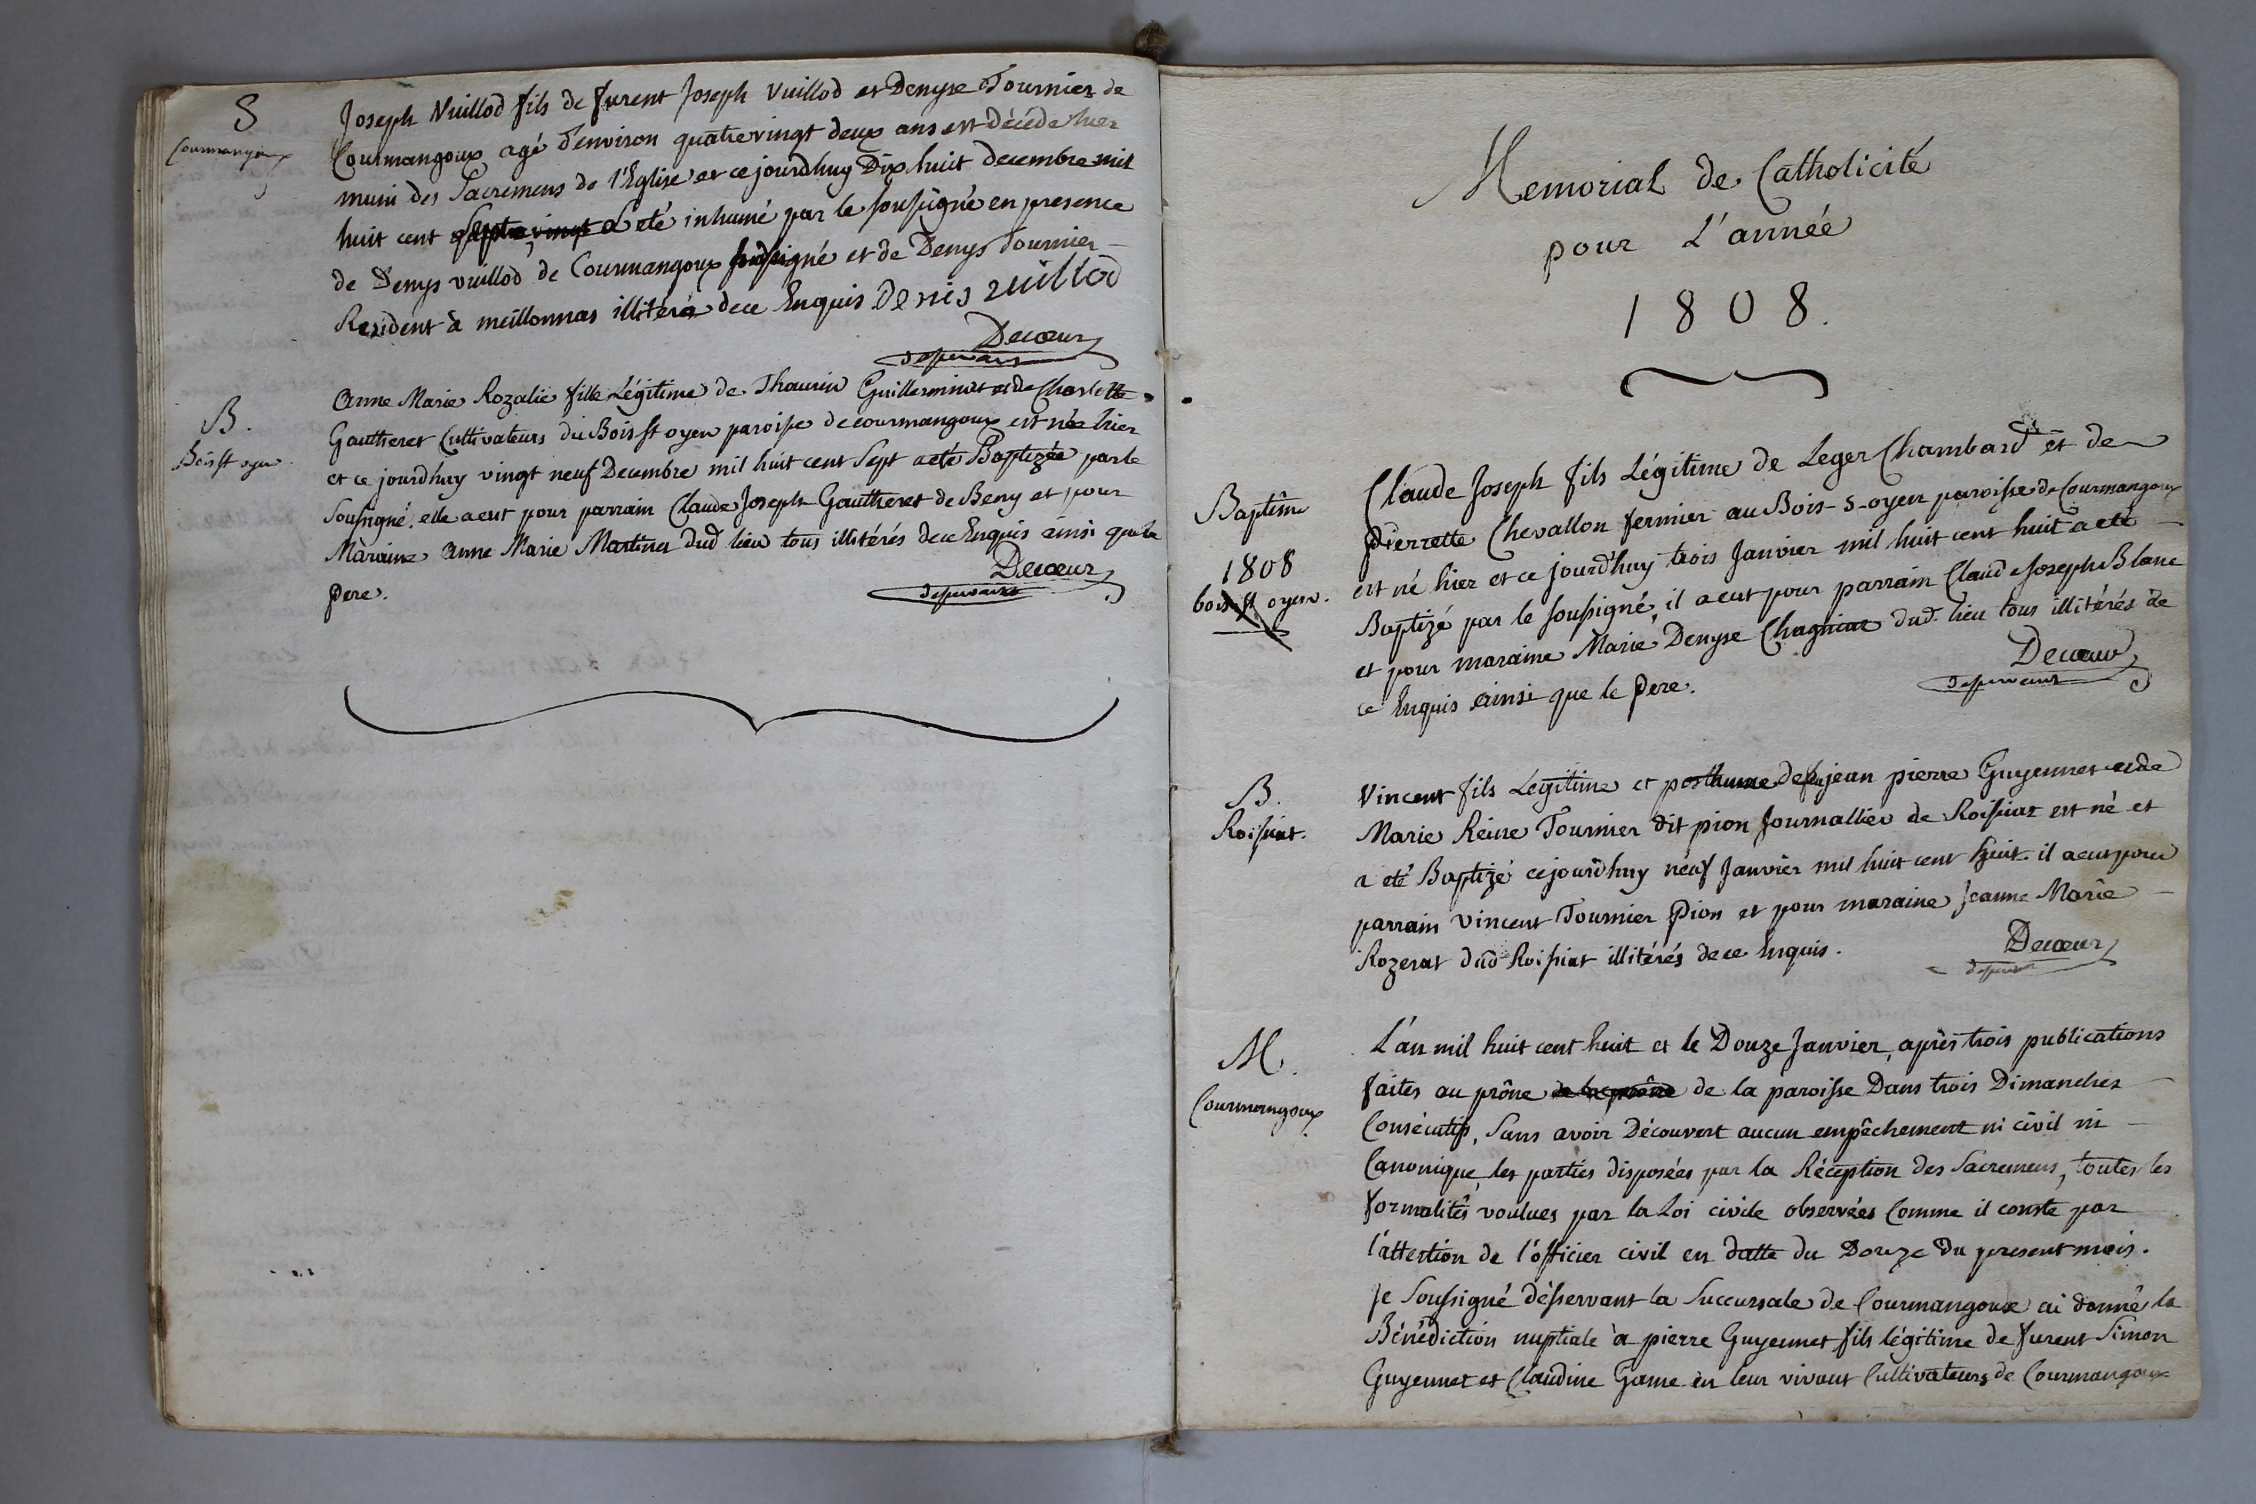 S
Courmangoux
Joseph Vuillod fils de furent Joseph Vuillod et Denyse Tournier de
Courmangoux agé d'environ quatrevingt deux ans est décédé hier
muni des Sacremens de l'Eglise et ce jourdhuy Dix huit decembre mil
huit cent a eté inhumé par le soussigné en presence
de Denys vuillod de Courmangoux soussigné et de Denys Tournier
Resident à meillonnas illitéré de ce Enquis Denis vuillod
Decœur
desservant
B.
Bois st oyen
Anne Marie Rozalie fille Légitime de Thaurin Guillerminet et de Charlotte
Gautheret Cultivateurs du Bois st oyen paroisse de courmangoux est née hier
et ce jourdhuy vingt neuf Decembre mil huit cent Sept a eté Baptizée par le
Soussigné. elle a eut pour parrain Claude Joseph Gautheret de Beny et pour
Maraine Anne Marie Martinet dud lieu tous illitérés de ce Enquis ainsi que le
Pere.
Decœur
desservant
Memorial de Catholicité
pour L'année
1808.
Baptême
1808
bois st oyen.
Claude Joseph fils Légitime de Leger Chambard et de
Pierrette Chevallon fermier au Bois-s-oyen paroisse de Courmangoux
est né hier et ce jourd'huy trois Janvier mil huit cent huit a eté
Baptizé par le soussigné, il a eut pour parrain Claude Joseph Blanc
et pour maraine Marie Denyse Chagniat dud. lieu tous illitérés de
ce Enquis ainsi que le Pere.
Decœur
desservant
B.
Roissiat.
Vincent fils Légitime et posthume de fu jean pierre Guyennet et de
Marie Reine Tournier dit pion Journallier de Roissiat est né et
a eté Baptizé cejourdhuy neuf Janvier mil huit cent huit. il a eut pour
parrain Vincent Tournier Pion et pour maraine Jeanne Marie
Rozerat dud Roissiat illitérés de ce Enquis.
Decœur
desservant
M.
Courmangoux
L'an mil huit cent huit et le Douze Janvier, après trois publications
faites au prône de la prône de la paroisse Dans trois Dimanches
Consécutifs, Sans avoir Découvert aucun empêchement ni civil ni
Canonique, les parties disposées par la Réception des Sacremens, toutes les
formalités voulues par la Loi civile observées Comme il conste par
l'attestion de l'officier civil en datte du Douze du present mois.
Je Soussigné désservant la Succursale de Courmangoux ai donné la
Bénédiction nuptiale à pierre Guyennet fils légitime de furent Simon
Guyennet et Claudine Game en leur vivant Cultivateurs de Courmangoux